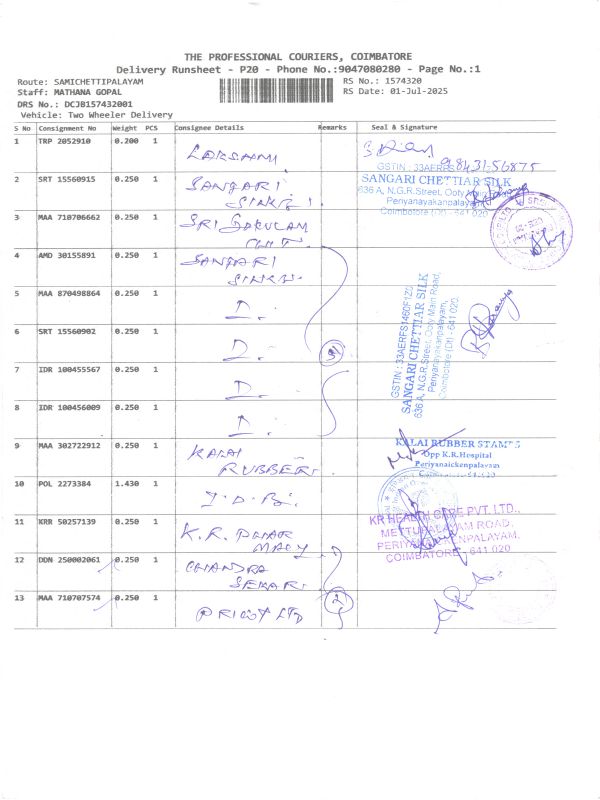 THE PROFESSIONAL COURIERS, COIMBATORE
Delivery Runsheet - P20 - Phone No.:9047080280 - Page No.:1
Route: SAMICHETTIPALAYAM
Staff: MATHANA GOPAL
DRS No.: DCJB157432001
Vehicle: Two Wheeler Delivery
RS No.: 1574320
RS Date: 01-Jul-2025
S No Consignment No Weight PCS Consignee Details Remarks Seal & Signature
1 TRP 2052910 0.200 1 LAKSHMI 98431-56875
2 SRT 15560915 0.250 1 SANGARI
3 MAA 710706662 0.250 1 SRI GOKULAM
4 AMD 30155891 0.250 1 SANGARI
5 MAA 870498864 0.250 1
6 SRT 15560902 0.250 1
7 IDR 100455567 0.250 1
8 IDR 100456009 0.250 1
9 MAA 302722912 0.250 1 KALAI RUBBER
10 POL 2273384 1.430 1
11 KRR 50257139 0.250 1 K.R. PHAR MACY
12 DDN 250002061 0.250 1 CHANDRA SEKAR
13 MAA 710707574 0.250 1 PRICOT LTD
SANGARI CHETTIAR SILK
636 A, N.G.R.Street, Ooty Main Road,
Periyanayakanpalayam,
Coimbatore (Dt) - 641 020
GSTIN : 33AERFS1460F1Z0
SANGARI CHETTIAR SILK
636 A, N.G.R.Street, Ooty Main Road,
Periyanayakanpalayam,
Coimbatore (Dt) - 641 020.
KALAI RUBBER STAMPS
Opp K.R.Hospital
Periyanaickenpalayam
Coimbatore-641 020
KR HEALTH CARE PVT. LTD.,
METTUPALAYAM ROAD,
PERIYANAICKENPALAYAM,
COIMBATORE - 641 020